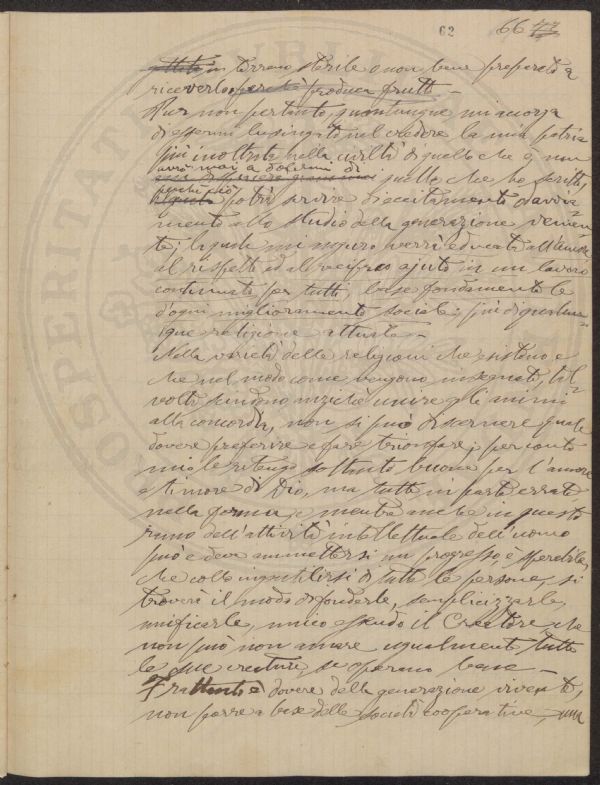 62 66
in terreno sterile o non bene preparato a
riceverlo, perchè produca frutti —
Pur non pertanto, quantunque mi accorga
d'essermi lusingato nel credere la mia patria
più inoltrata nella civiltà di quello che è, non
avrò mai a dolermi di
quello che ho scritto,
perchè ciò
potrà servire d'eccitamento od avvia=
mento allo studio della generazione venien
te; la quale mi auguro verrà educata all'amore,
al rispetto ed al reciproco ajuto in un lavoro
continuato per tutti, base fondamentale
d'ogni miglioramento sociale; più di qualun=
que religione attuale —
Nella varietà delle religioni che esistono e
che nel modo come vengono insegnate, tal
volta scindono anzichè unire gli animi
alla concordia, non si può discernere quale
dovere preferire e fare trionfare; per conto
mio le ritengo soltanto buone per l'amore
e timore di Dio, ma tutte in parte errate
nella forma, e mentre anche in questo
ramo dell'attività intellettuale dell'uomo
può e deve ammettersi un progresso, è sperabile,
che collo ingentilirsi di tutte le persone, si
troverà il modo di fonderle, semplicizzarle,
unificarle, unico essendo il Creatore che
non può non amare ugualmente tutte
le sue creature, se operano bene —
Frattanto è dovere della generazione vivente,
non porre a base delle società cooperative, una